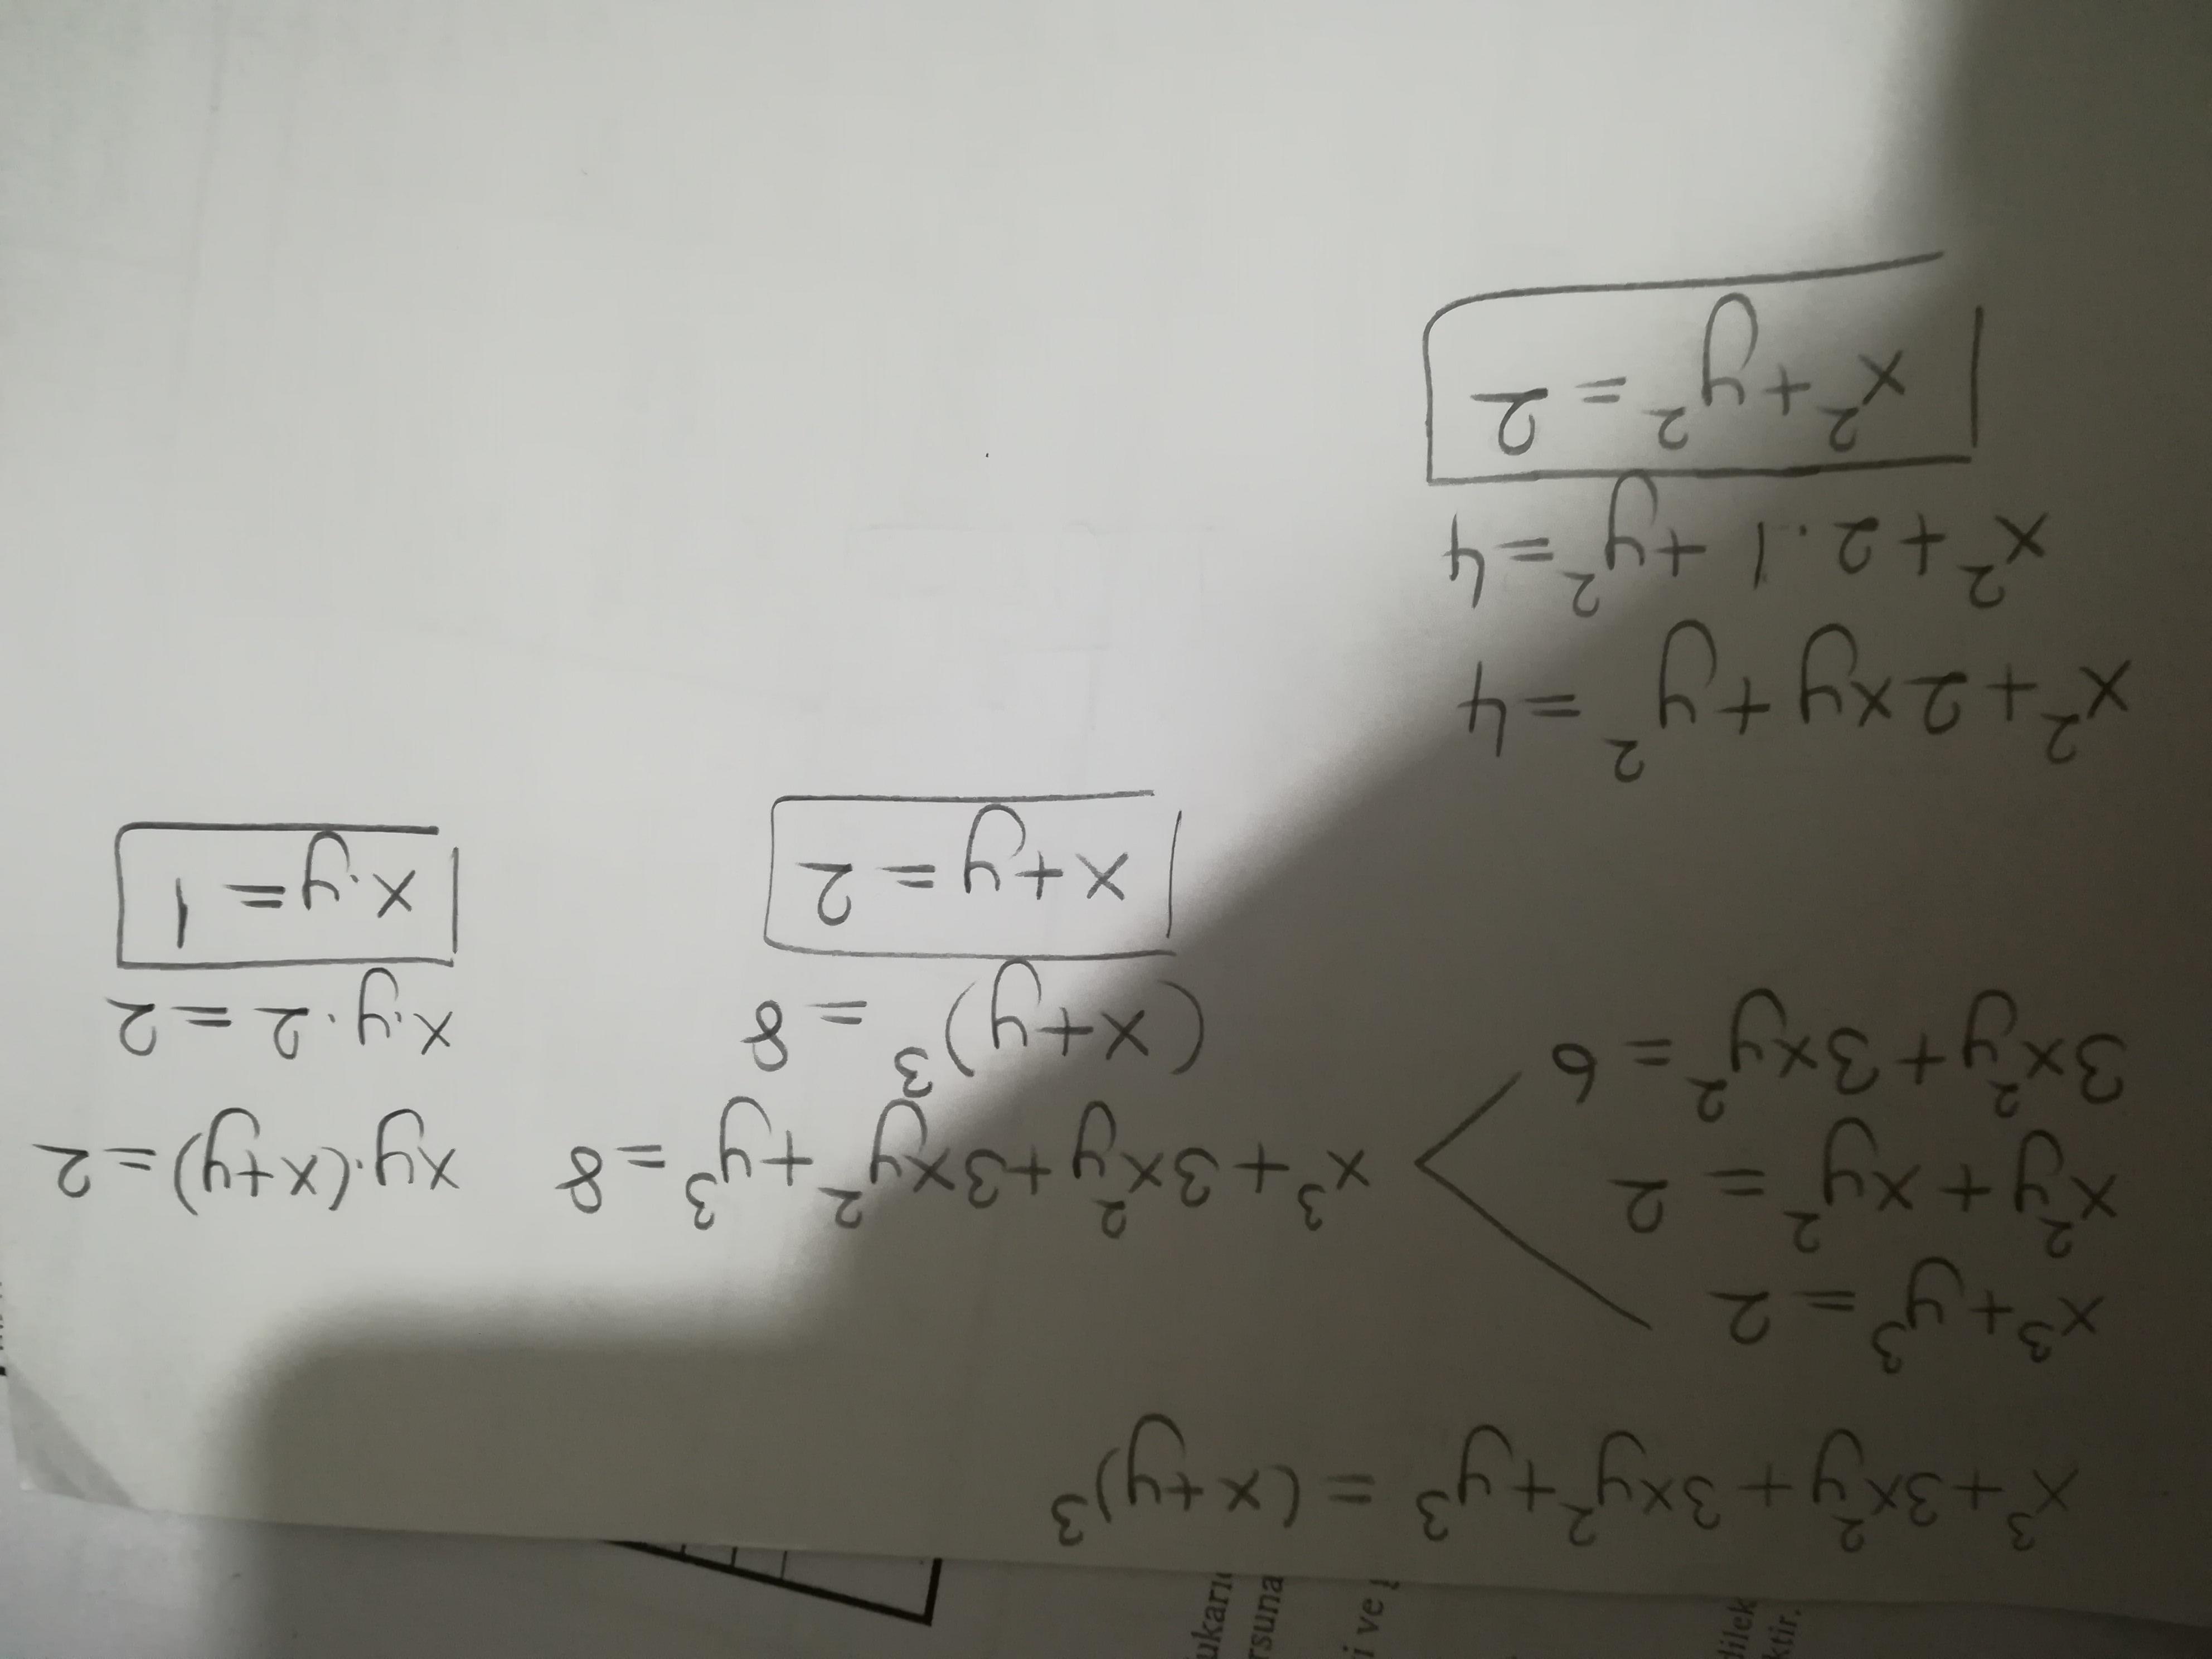 x³+3x²y+3xy²+y³ = (x+y)³
x³+y³ = 2
x²y+xy² = 2
3x²y+3xy² = 6
x³+3x²y+3xy²+y³=8
(x+y)³ = 8
x+y = 2
xy.(x+y)=2
x.y.2=2
x.y=1
x²+2xy+y²=4
x²+2.1+y²=4
x²+y²=2
rsuna
i ve
dilek
ktir.